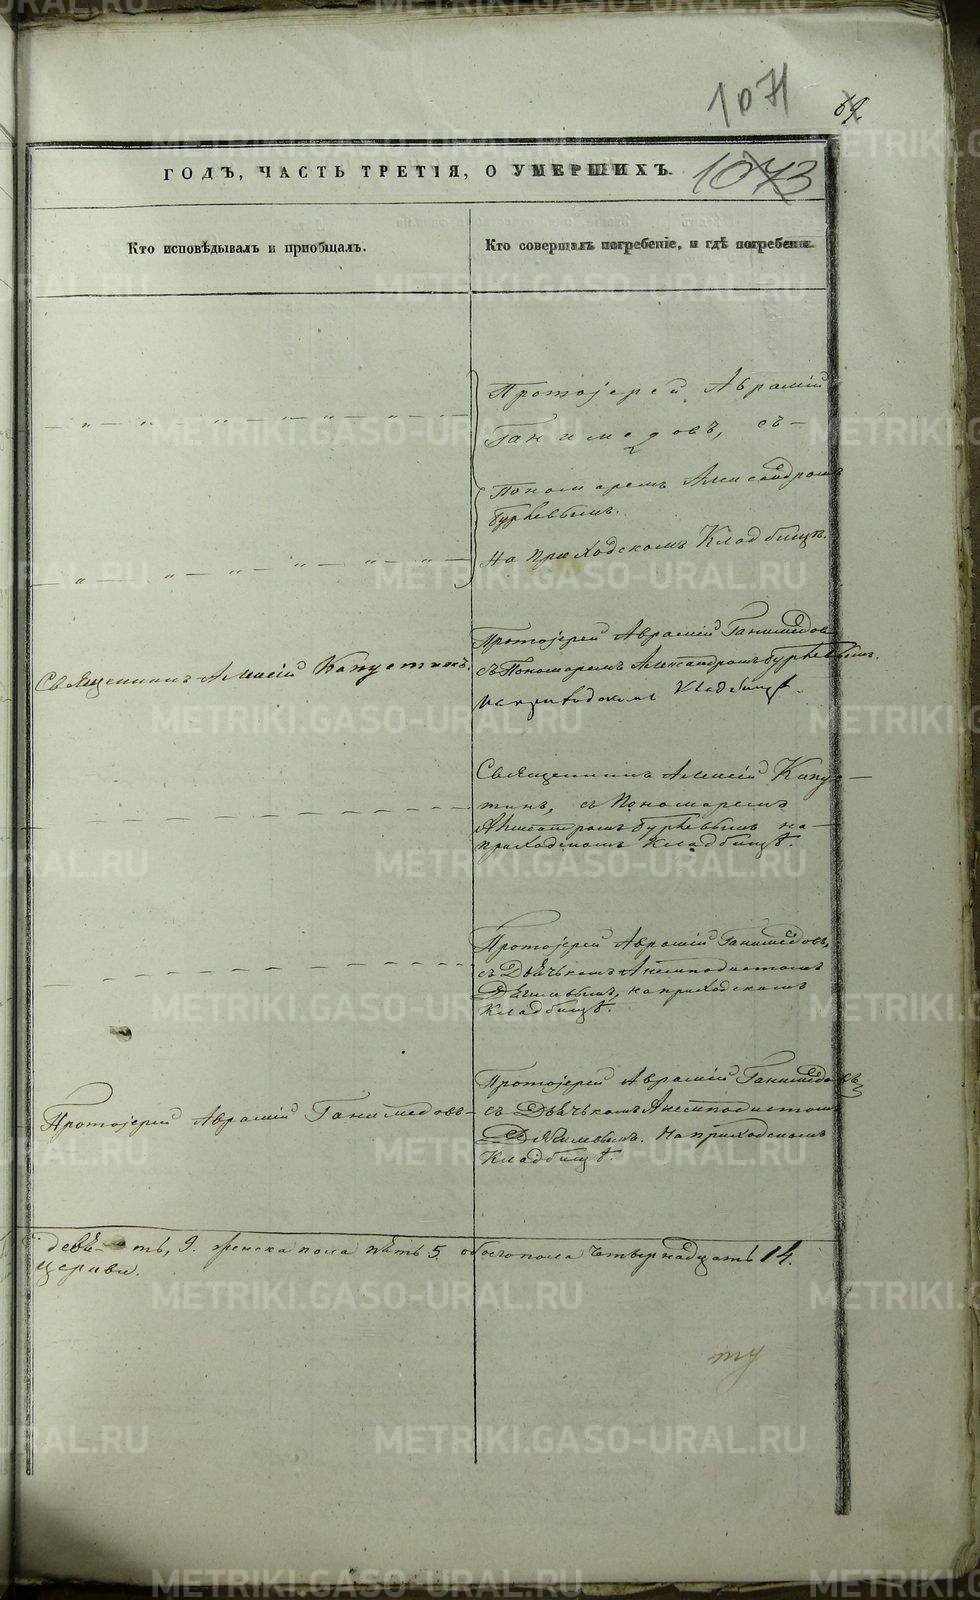 1071
69.
ГОДЪ, ЧАСТЬ ТРЕТІЯ, О УМЕРШИХЪ.
1073
Кто исповѣдывалъ и пріобщалъ.
Кто совершалъ погребеніе, и гдѣ погребены.
Протоіерей Аврамій
Ганимедовъ, съ
Пономаремъ Александромъ
Бурдевымъ.
На приходскомъ Кладбищѣ.
Священникъ Алексій Капустинъ.
Протоіерей Аврамій Ганимедов
съ Пономаремъ Александромъ
на приходскомъ Кладбищѣ.
Священникъ Алексій Капус-
тинъ, съ Пономаремъ
Александромъ на
приходскомъ Кладбищѣ.
Протоіерей Аврамій Ганимедовъ,
съ Дьячкомъ Анемподистомъ
на приходскомъ
Кладбищѣ.
Протоіерей Аврамій Ганимедовъ
Протоіерей Аврамій Ганимедовъ
съ Дьячкомъ Анемподистомъ
На приходскомъ
Кладбищѣ.
девять, 9. женска пола пять 5. обоего пола четырнадцать 14.
церкви.
METRIKI.GASO-URAL.RU